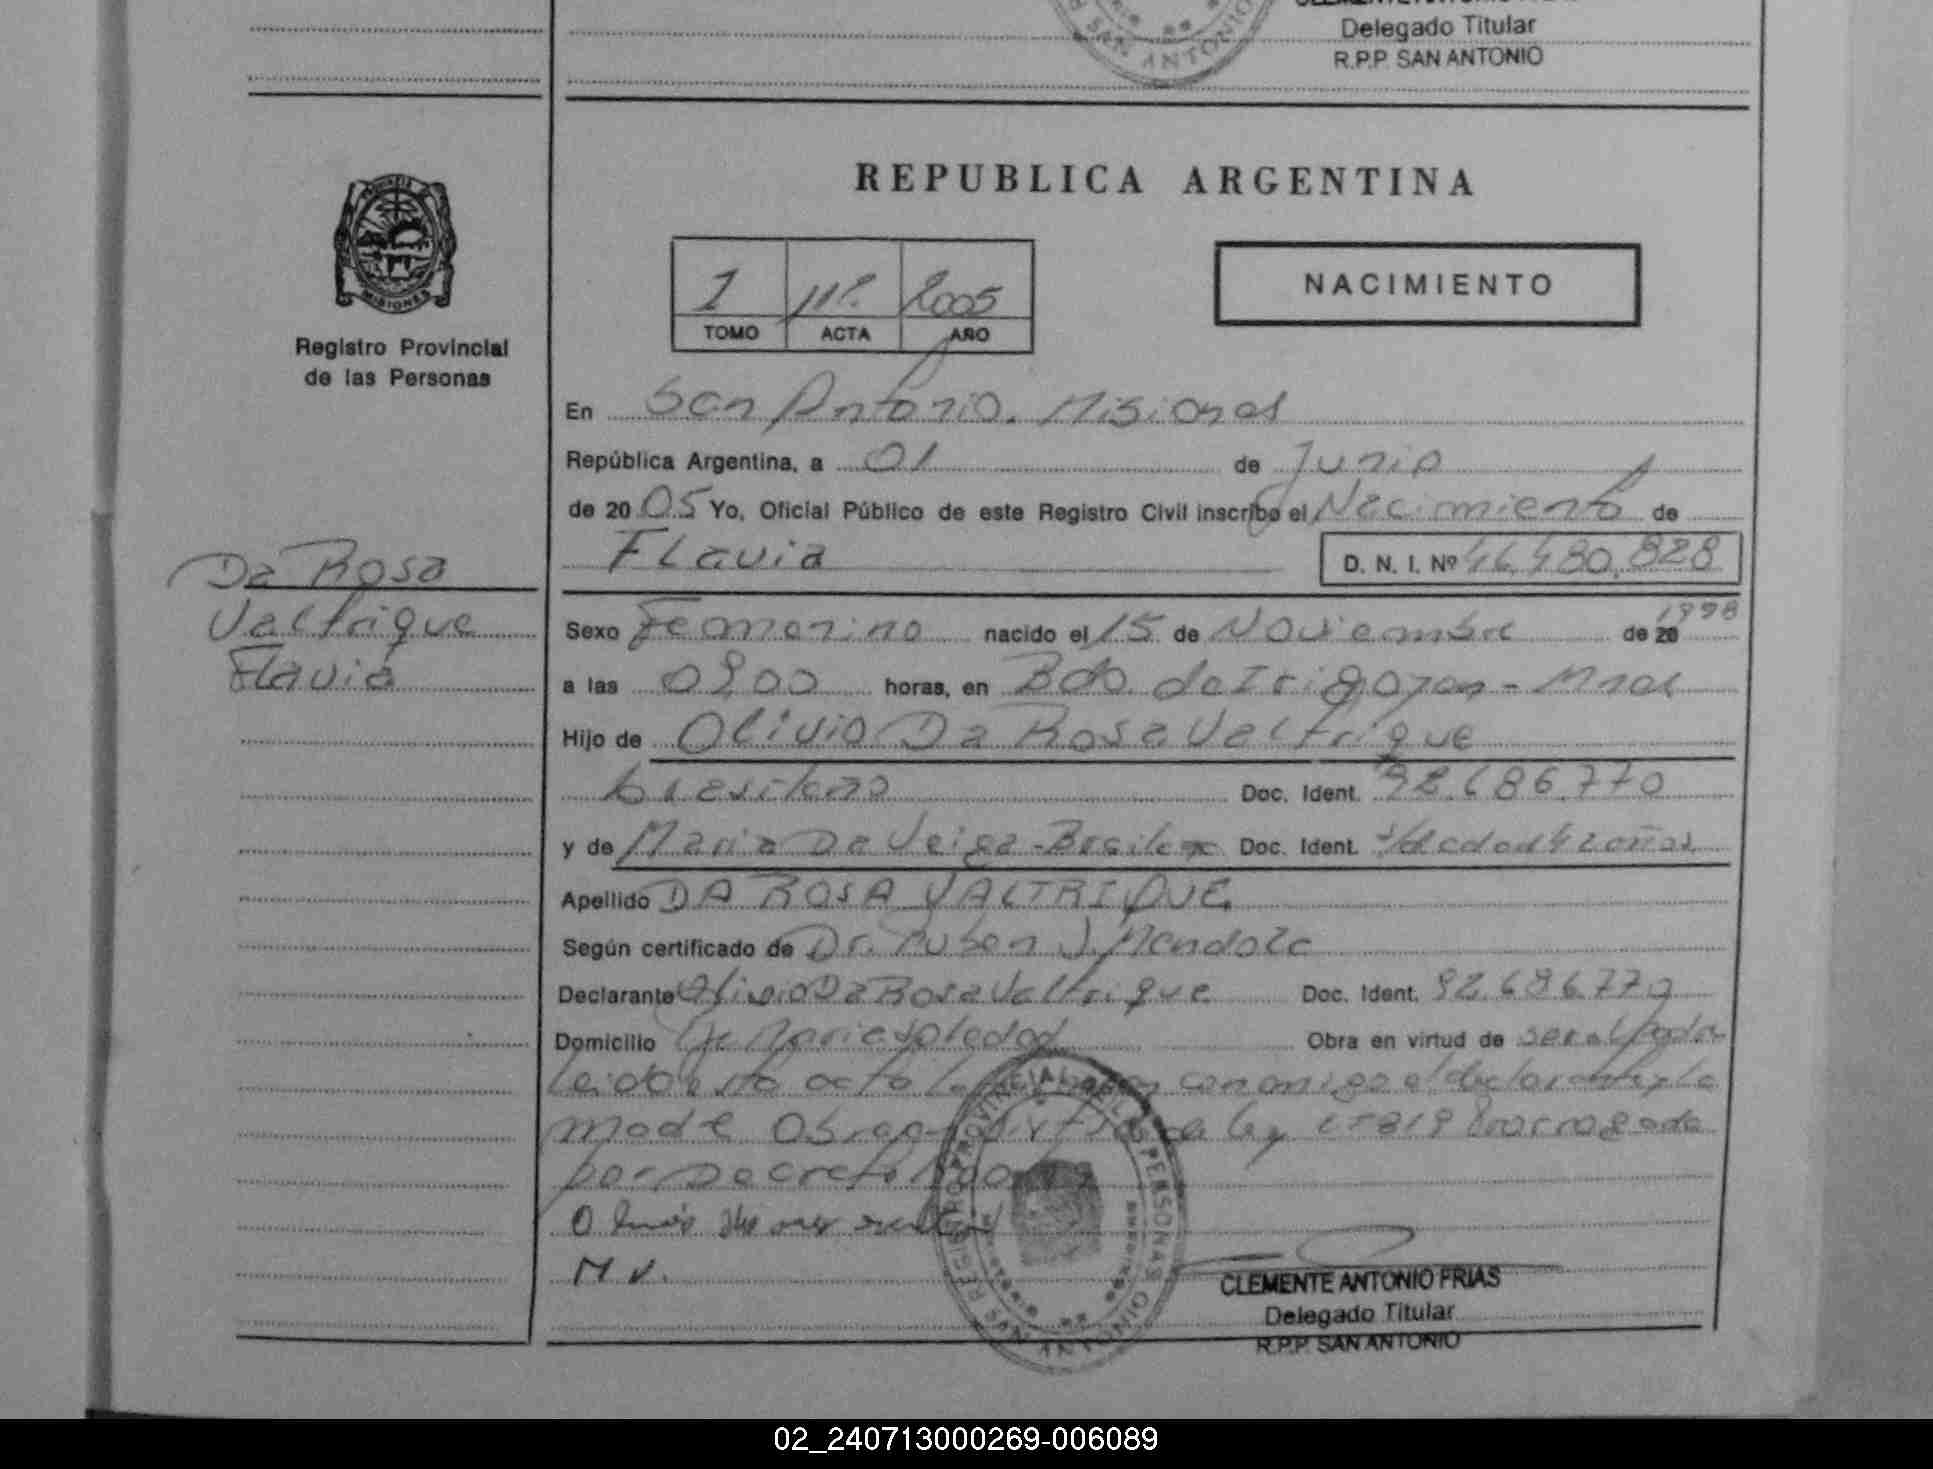 CLEMENTE ANTONIO FRIAS
Delegado Titular
R.P.P. SAN ANTONIO
SAN ANTONIO
PROVINCIA DE
MISIONES
Registro Provincial
de las Personas
REPUBLICA ARGENTINA
1 2005
TOMO ACTA AÑO
NACIMIENTO
En San Antonio. Misiones
República Argentina, a 01 de Junio
de 2005 Yo, Oficial Público de este Registro Civil inscribo el Nacimiento de
Flavia D. N. I. Nº 46.480.828
Da Rosa
Valtrique
Flavia
Sexo Femenino nacido el 15 de Noviembre de 20 1998
a las 09,00 horas, en Bdo. de Irigoyen - Mnes
Hijo de Olivio Da Rosa Valtrique
brasileño Doc. Ident. 92.686.770
y de Maria Da Veiga - Doc. Ident.
Apellido DA ROSA VALTRIQUE
Según certificado de Dr. Ruben J. Mendoza
Declarante Olivio Da Rosa Valtrique Doc. Ident. 92.686.770
Domicilio Maria Soledad Obra en virtud de ser
Leido esta acta la con migo el declarante
Ley
por Decreto
O
M V.
REGISTRO PROVINCIAL DE LAS PERSONAS
SAN ANTONIO
CLEMENTE ANTONIO FRIAS
Delegado Titular
R.P.P. SAN ANTONIO
02_240713000269-006089